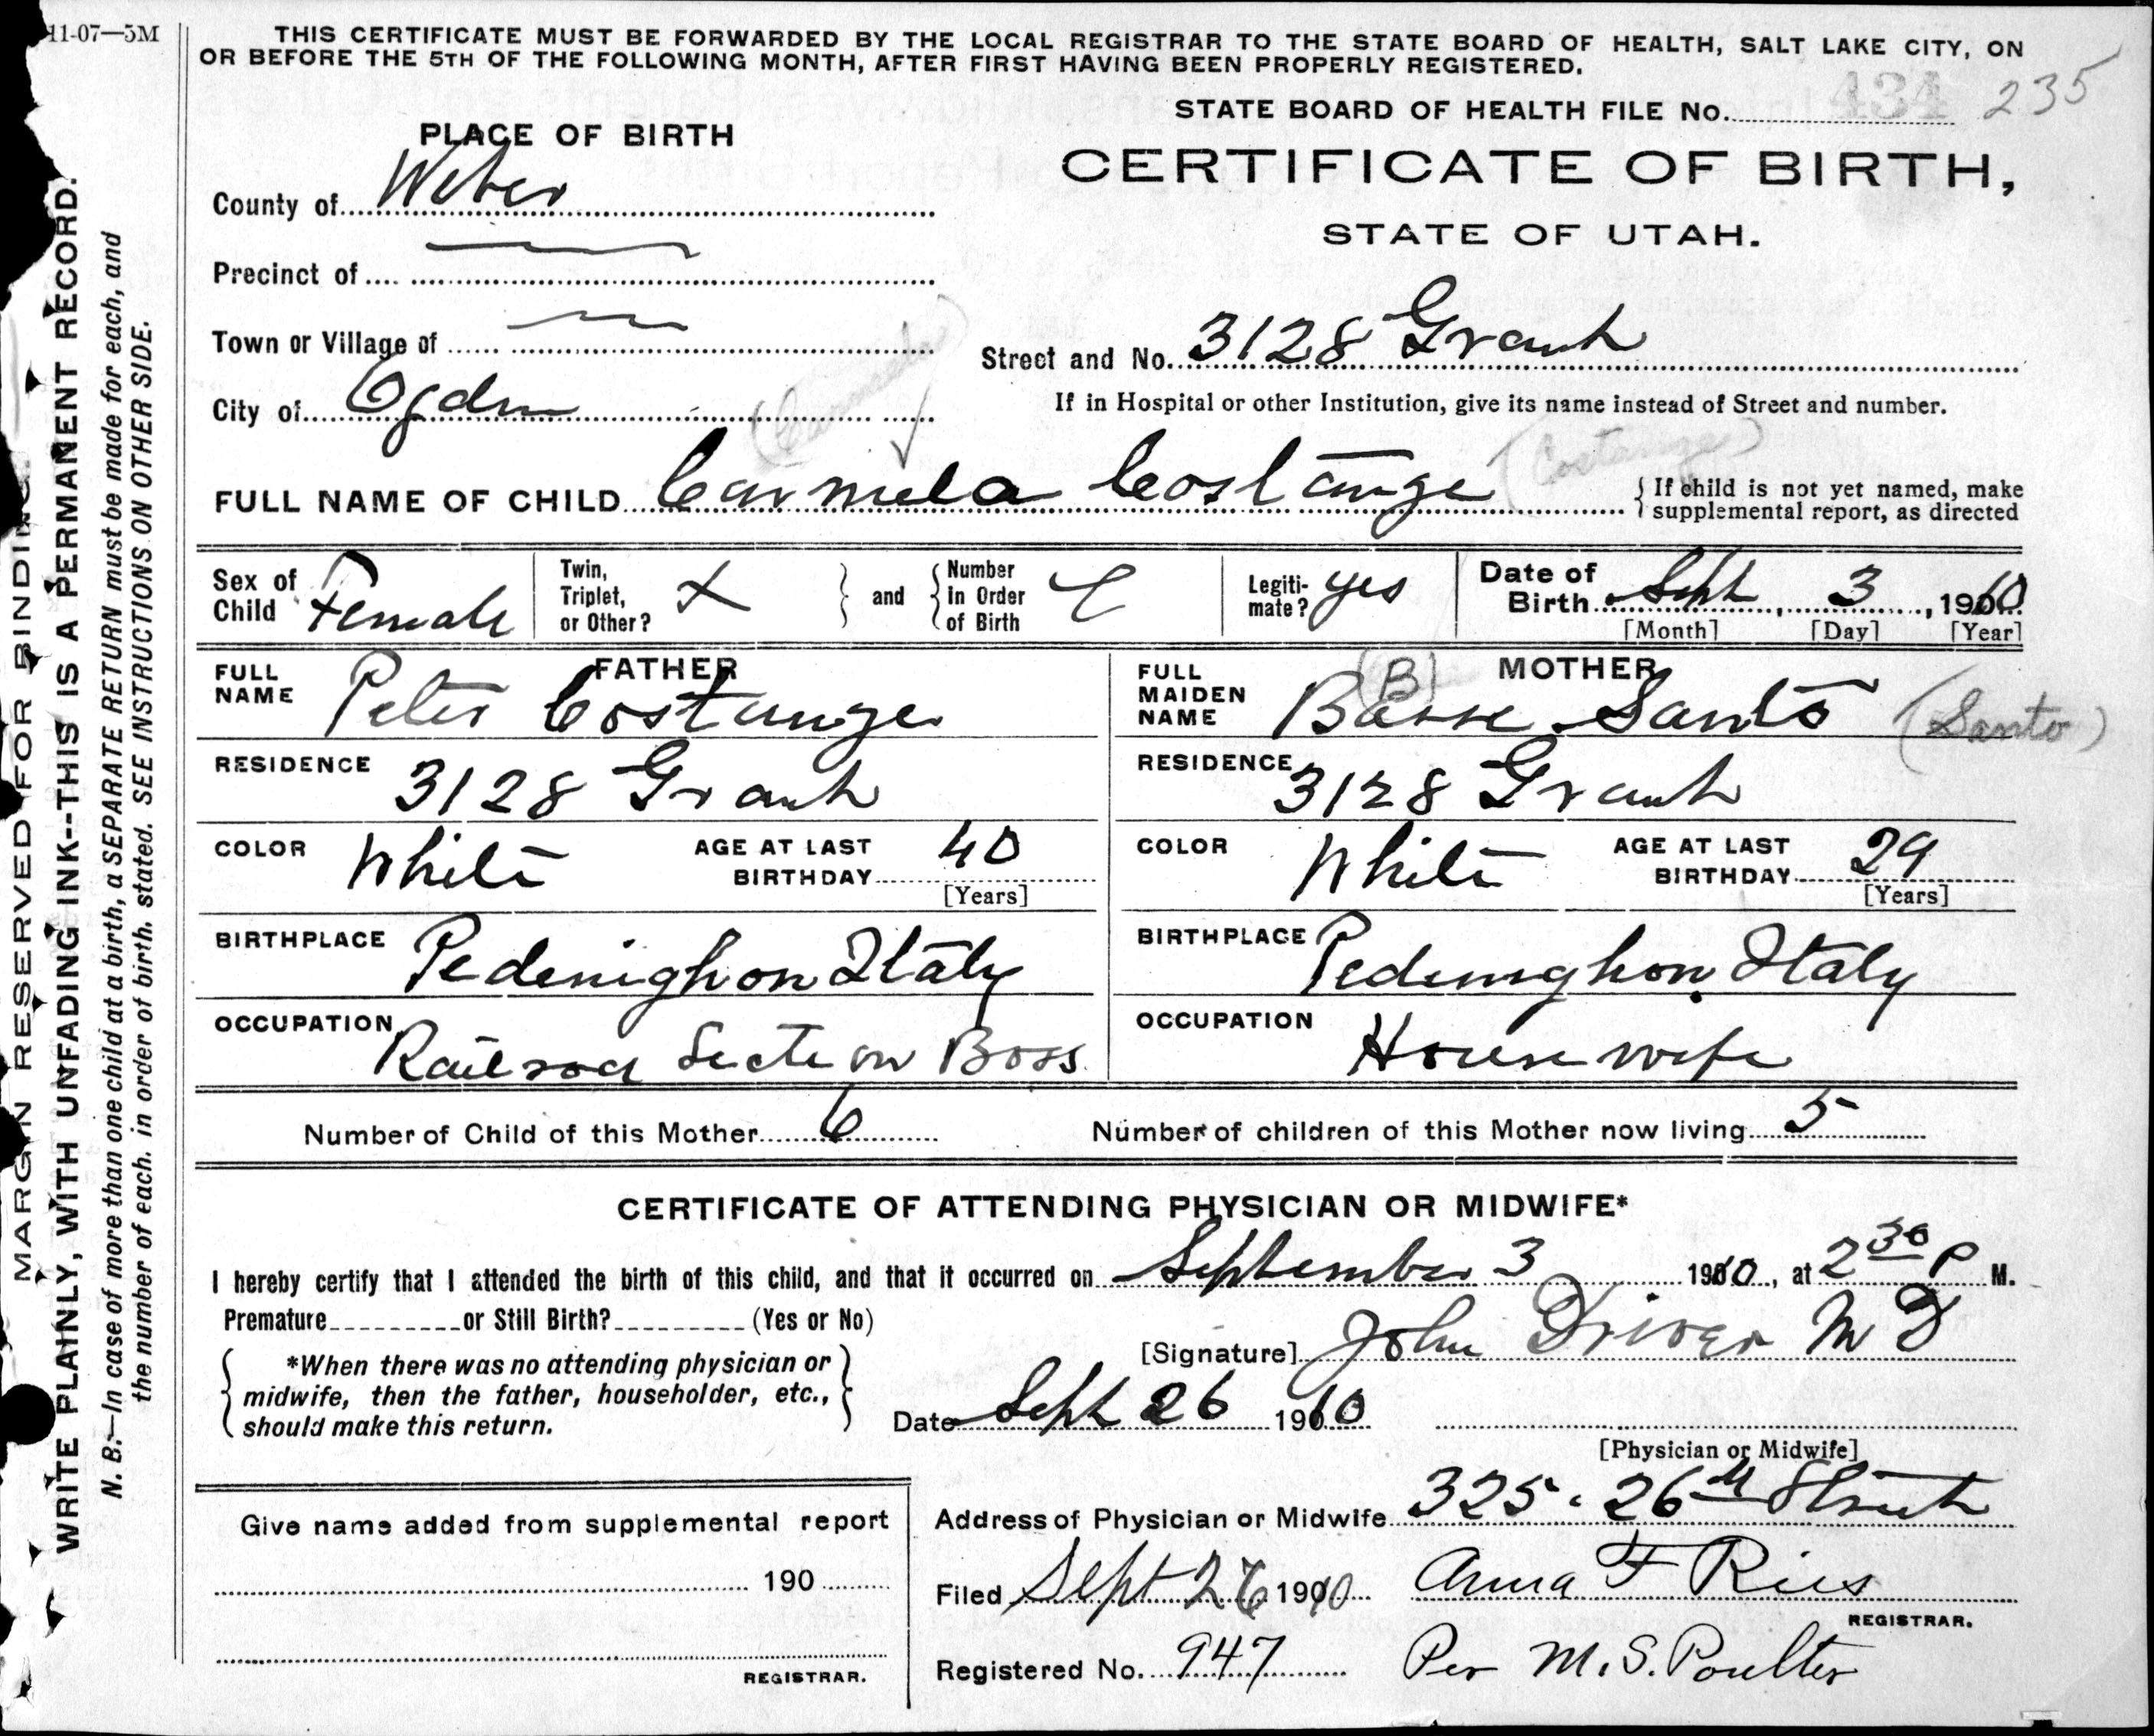 11-07—5M
THIS CERTIFICATE MUST BE FORWARDED BY THE LOCAL REGISTRAR TO THE STATE BOARD OF HEALTH, SALT LAKE CITY, ON
OR BEFORE THE 5TH OF THE FOLLOWING MONTH, AFTER FIRST HAVING BEEN PROPERLY REGISTERED.
STATE BOARD OF HEALTH FILE No. 434 235
PLACE OF BIRTH
CERTIFICATE OF BIRTH,
STATE OF UTAH.
County of Weber
Precinct of
Town or Village of
Street and No. 3128 Grant
City of Ogden
If in Hospital or other Institution, give its name instead of Street and number.
(Carmela) (Costange)
FULL NAME OF CHILD Carmela Costange
{ If child is not yet named, make
supplemental report, as directed
Sex of Child Female
Twin, Triplet, or Other? X
and
Number In Order of Birth
Legiti-mate? yes
Date of Birth Sept, 3, 1910
[Month] [Day] [Year]
FATHER
FULL NAME Peter Costange
RESIDENCE 3128 Grant
COLOR White
AGE AT LAST BIRTHDAY 40
[Years]
BIRTHPLACE Pedenighon Italy
OCCUPATION Railroad Section Boss
MOTHER
FULL MAIDEN NAME (B) Santo (Santo)
RESIDENCE 3128 Grant
COLOR White
AGE AT LAST BIRTHDAY 29
[Years]
BIRTHPLACE Pedenighon, Italy
OCCUPATION Housewife
Number of Child of this Mother 6
Number of children of this Mother now living 5
CERTIFICATE OF ATTENDING PHYSICIAN OR MIDWIFE*
I hereby certify that I attended the birth of this child, and that it occurred on September 3 1910, at 2 30 P M.
Premature or Still Birth? (Yes or No)
[Signature] John Driver M D
*When there was no attending physician or
midwife, then the father, householder, etc.,
should make this return.
Date Sept 26 1910
[Physician or Midwife]
Address of Physician or Midwife 325 . 26th Street
Give name added from supplemental report
190
REGISTRAR.
Filed Sept 26 1910 Anna F Ries
REGISTRAR.
Registered No. 947 Per M. S. Poulter
MARGIN RESERVED FOR BINDING.
WRITE PLAINLY, WITH UNFADING INK--THIS IS A PERMANENT RECORD.
N. B.—In case of more than one child at a birth, a SEPARATE RETURN must be made for each, and
the number of each. in order of birth. stated. SEE INSTRUCTIONS ON OTHER SIDE.